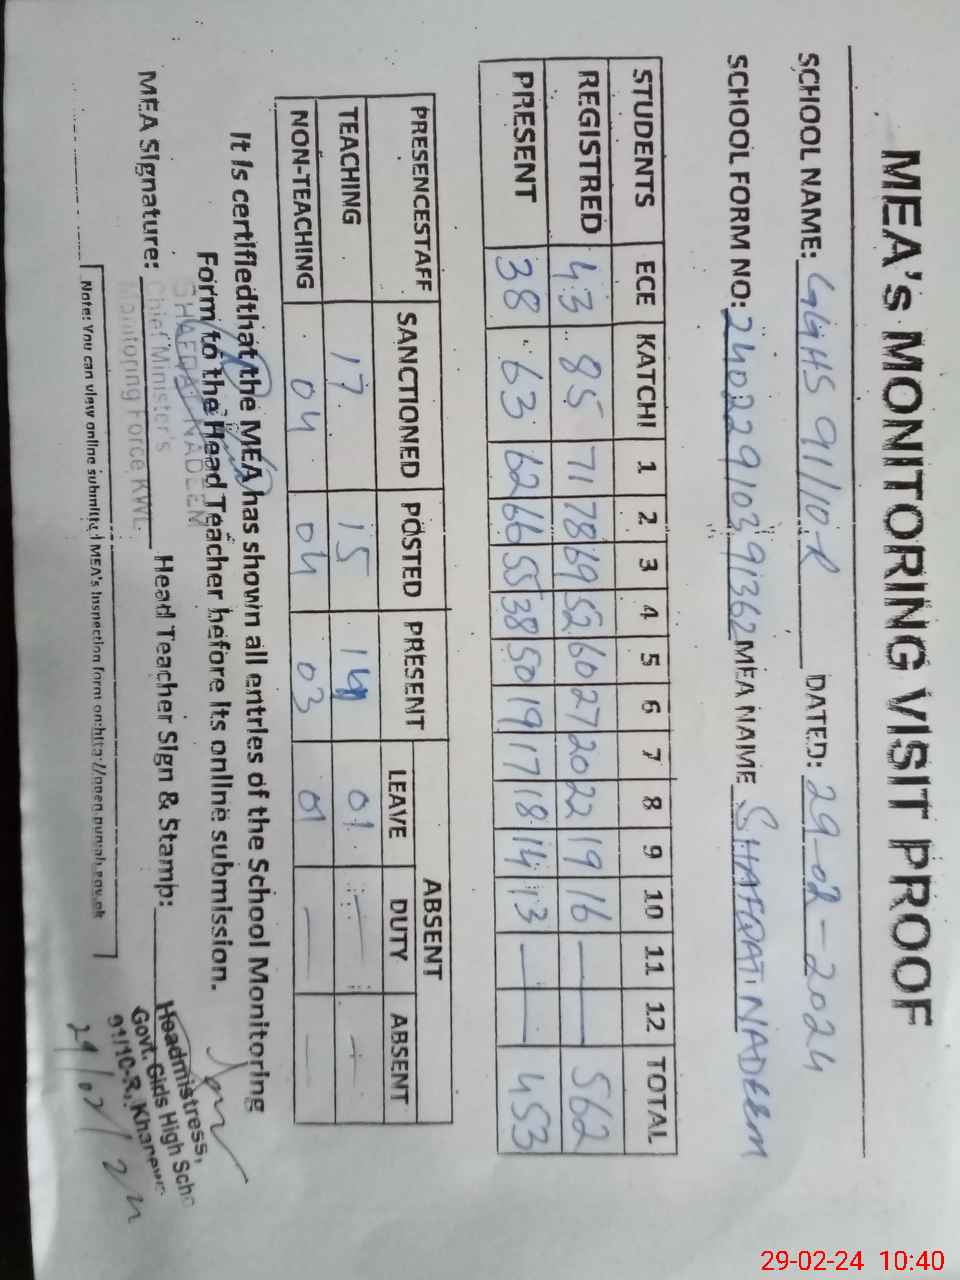 MEA's MONITORING VISIT PROOF
SCHOOL NAME: GGHS 91/10R DATED: 29-02-2024
SCHOOL FORM NO: 24022910391362 MEA NAME SHAFQAT NADEEM
STUDENTS ECE KATCHI 1 2 3 4 5 6 7 8 9 10 11 12 TOTAL
REGISTRED 43 85 71 78 69 52 60 27 20 22 19 16 — — 562
PRESENT 38 63 62 66 55 38 50 19 17 18 14 13 — — 453
PRESENCESTAFF SANCTIONED POSTED PRESENT ABSENT
LEAVE DUTY ABSENT
TEACHING 17 15 14 01 — —
NON-TEACHING 04 04 03 01 — —
It is certifiedthat the MEA has shown all entries of the School Monitoring
Form to the Head Teacher before its online submission.
SHAFQAT NADEEM
Chief Minister's
Monitoring Force KWL
MEA Signature: Head Teacher Sign & Stamp:
Headmistress,
Govt. Girls High Scho
91/10-R, Khanewa
29/02/24
Note: You can view online submitted MEA's Inspection form on:http://open.punjab.gov.pk
29-02-24 10:40